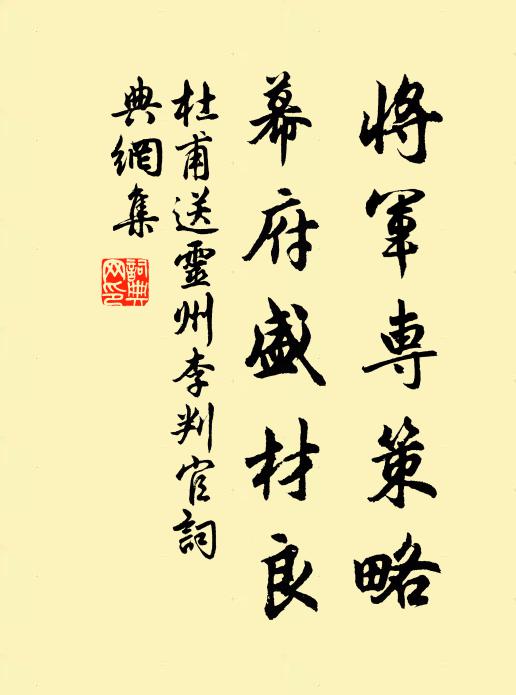 將軍専策略
幕府盛材良
杜甫送靈州李判官詞
典網集
詞典
网印